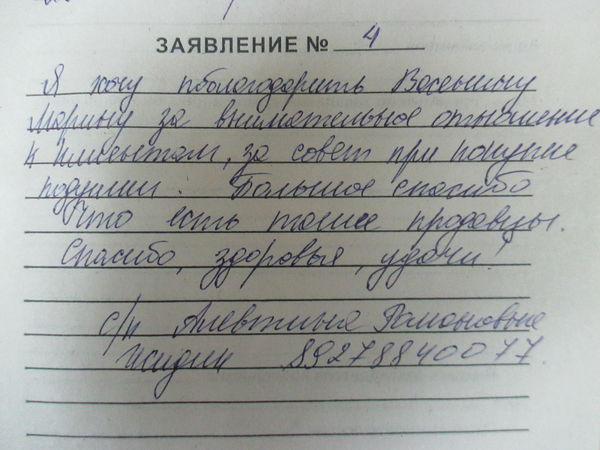 ЗАЯВЛЕНИЕ № 4
Я хочу поблагодарить
Марину за внимательное отношение
к клиентам, за совет при покупке
подушки. Большое спасибо
Что есть такие продавцы.
Спасибо, здоровья, удачи!
с/п Алевтина Рамоновна
89278840077.